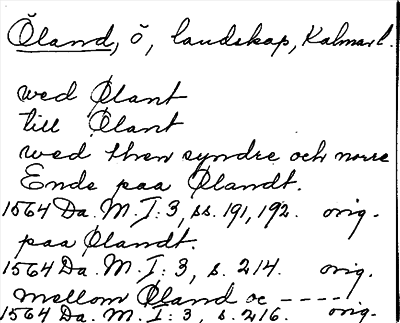 Öland, ö, landskap, Kalmar l.
wed Ølant
till Ølant
wed then syndre och norre
Ende paa Ølandt.
1564 Da. M. I: 3, ss. 191, 192. orig.
paa Ølandt.
1564 Da. M. I: 3, s. 214. orig.
mellom Øland oc ----
1564 Da. M. I: 3, s. 216. orig.